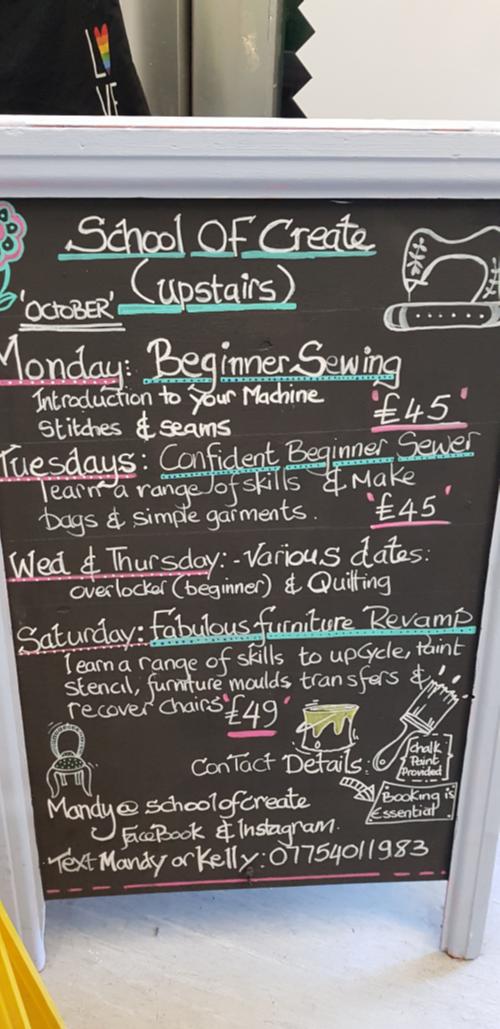 LOVE
School OF Create
(upstairs)
'OCTOBER'
Monday: Beginner Sewing
Introduction to Your Machine
Stitches & seams
'£45'
Tuesdays: Confident Beginner Sewer
learn a range of skills & Make
bags & simple garments.
'£45'
Wed & Thursday:- Various dates:
overlocker (beginner) & Quilting
Saturday: Fabulous furniture Revamp
learn a range of skills to upcycle, paint
stencil, furniture moulds transfers &
recover chairs '£49'
Chalk
Paint
Provided
Contact Details:
Booking is
Essential
Mandy@schoolofcreate
FaceBook & Instagram.
Text Mandy or Kelly: 07754011983